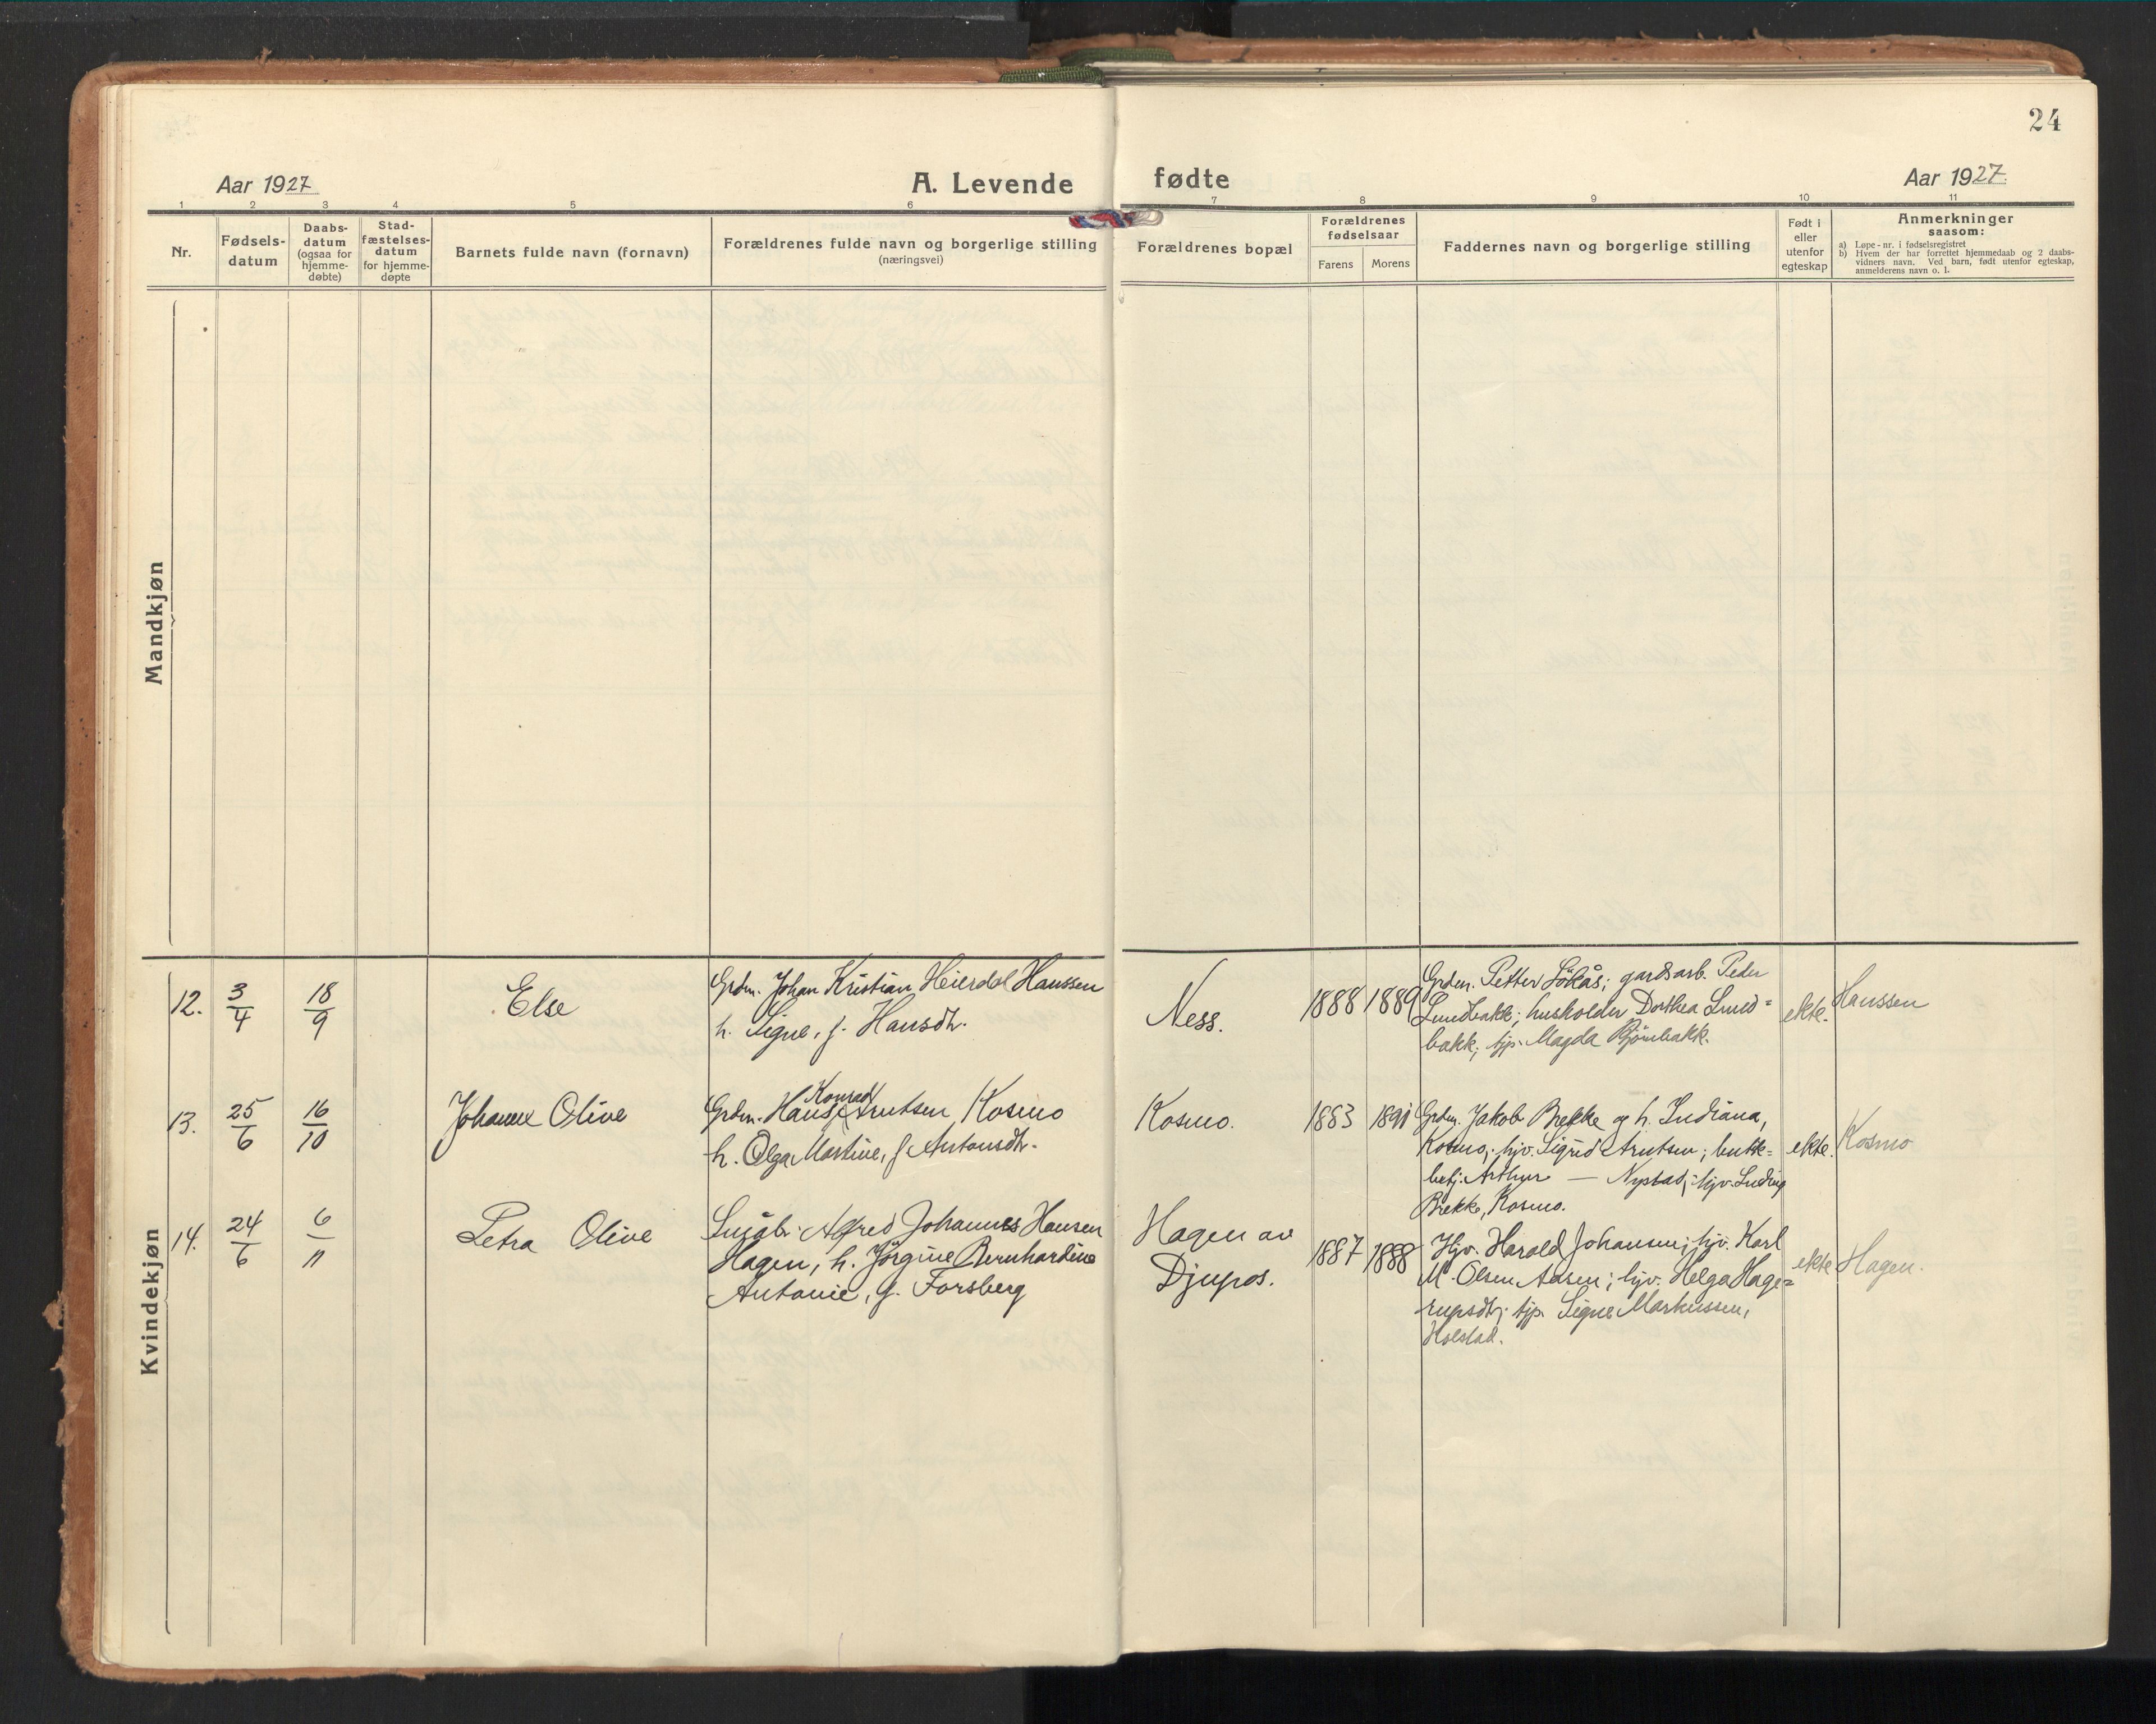 24
Aar 1927
A. Levende fødte
Aar 1927.
1 2 3 4 5 6 7 8 9 10 11
Nr.
Fødsels-
datum
Daabs-
datum
(ogsaa for
hjemme-
døbte)
Stad-
fæstelses-
datum
for hjemme-
døpte
Barnets fulde navn (fornavn)
Forældrenes fulde navn og borgerlige stilling
(næringsvei)
Forældrenes bopæl
Forældrenes
fødselsaar
Farens Morens
Faddernes navn og borgerlige stilling
Født i
eller
utenfor
egteskap
Anmerkninger
saasom:
a) Løpe-nr. i fødselsregistret
b) Hvem der har forrettet hjemmedaab og 2 daabs-
vidners navn. Ved barn, født utenfor egteskap,
anmelderens navn o. l.
Mandkjøn
Kvindekjøn
12.
3/4
18/9
Else
Grdm. Johan Kristian Heierdal Hanssen
h. Signe, f. Hansdtr.
Ness.
1888 1889
Grdm. Petter Lökås; gardsarb. Peder
Lundbakk; husholder Dorthea Lund=
bakk; tjp. Magda Bjönbakk.
ekte.
Hanssen
13.
25/6
16/10
Johanne Olive
Konrad
Grdm. Hans Arntsen Kosmo
h. Olga Martine, f. Antonsdtr.
Kosmo.
1883 1891
Grdm. Jakob Brekke og h. Indiana,
Kosmo; hjv. Sigrid Arntsen; butik=
betj. Arthur — Nystad; hjv. Ludvig
Brekke, Kosmo.
ekte.
Kosmo
14.
24/6
6/11
Petra Olive
Småbr. Alfred Johannes Hansen
Hagen, h. Jörgine Bernhardine
Antonie, f. Forsberg
Hagen av
Djupos.
1887 1888
Hjv. Harald Johansen; hjv. Karl
M. Olsen Aasen; hjv. Helga Hage=
rupsdtr; tjp. Signe Markussen,
Holstad.
ekte
Hagen.